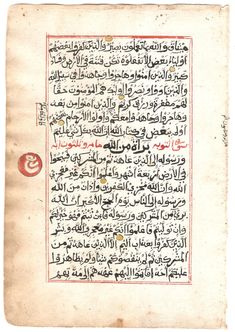 ميثاق والله بما تعملون بصير والذين كفروا بعضهم
أولياء بعض إلا تفعلوه تكن فتنة في الأرض وفساد
كبير والذين ءامنوا وهاجروا وجاهدوا في سبيل الله
والذين ءاووا ونصروا أولئك هم المؤمنون حقا لهم
مغفرة ورزق كريم والذين ءامنوا من بعد وهاجروا
وجاهدوا معكم فأولئك منكم وأولوا الأرحام بعضهم
أولى ببعض في كتاب الله إن الله بكل شيء عليم
سورة التوبة براءة من الله
ورسوله إلى الذين عاهدتم من المشركين فسيحوا
في الأرض أربعة أشهر واعلموا أنكم غير معجزي
الله وأن الله مخزي الكافرين وأذان من الله
ورسوله إلى الناس يوم الحج الأكبر أن الله
بريء من المشركين ورسوله فإن تبتم فهو خير لكم
وإن توليتم فاعلموا أنكم غير معجزي الله وبشر
الذين كفروا بعذاب أليم إلا الذين عاهدتم من
المشركين ثم لم ينقصوكم شيئا ولم يظاهروا
عليكم أحدا فأتموا إليهم عهدهم إلى مدتهم